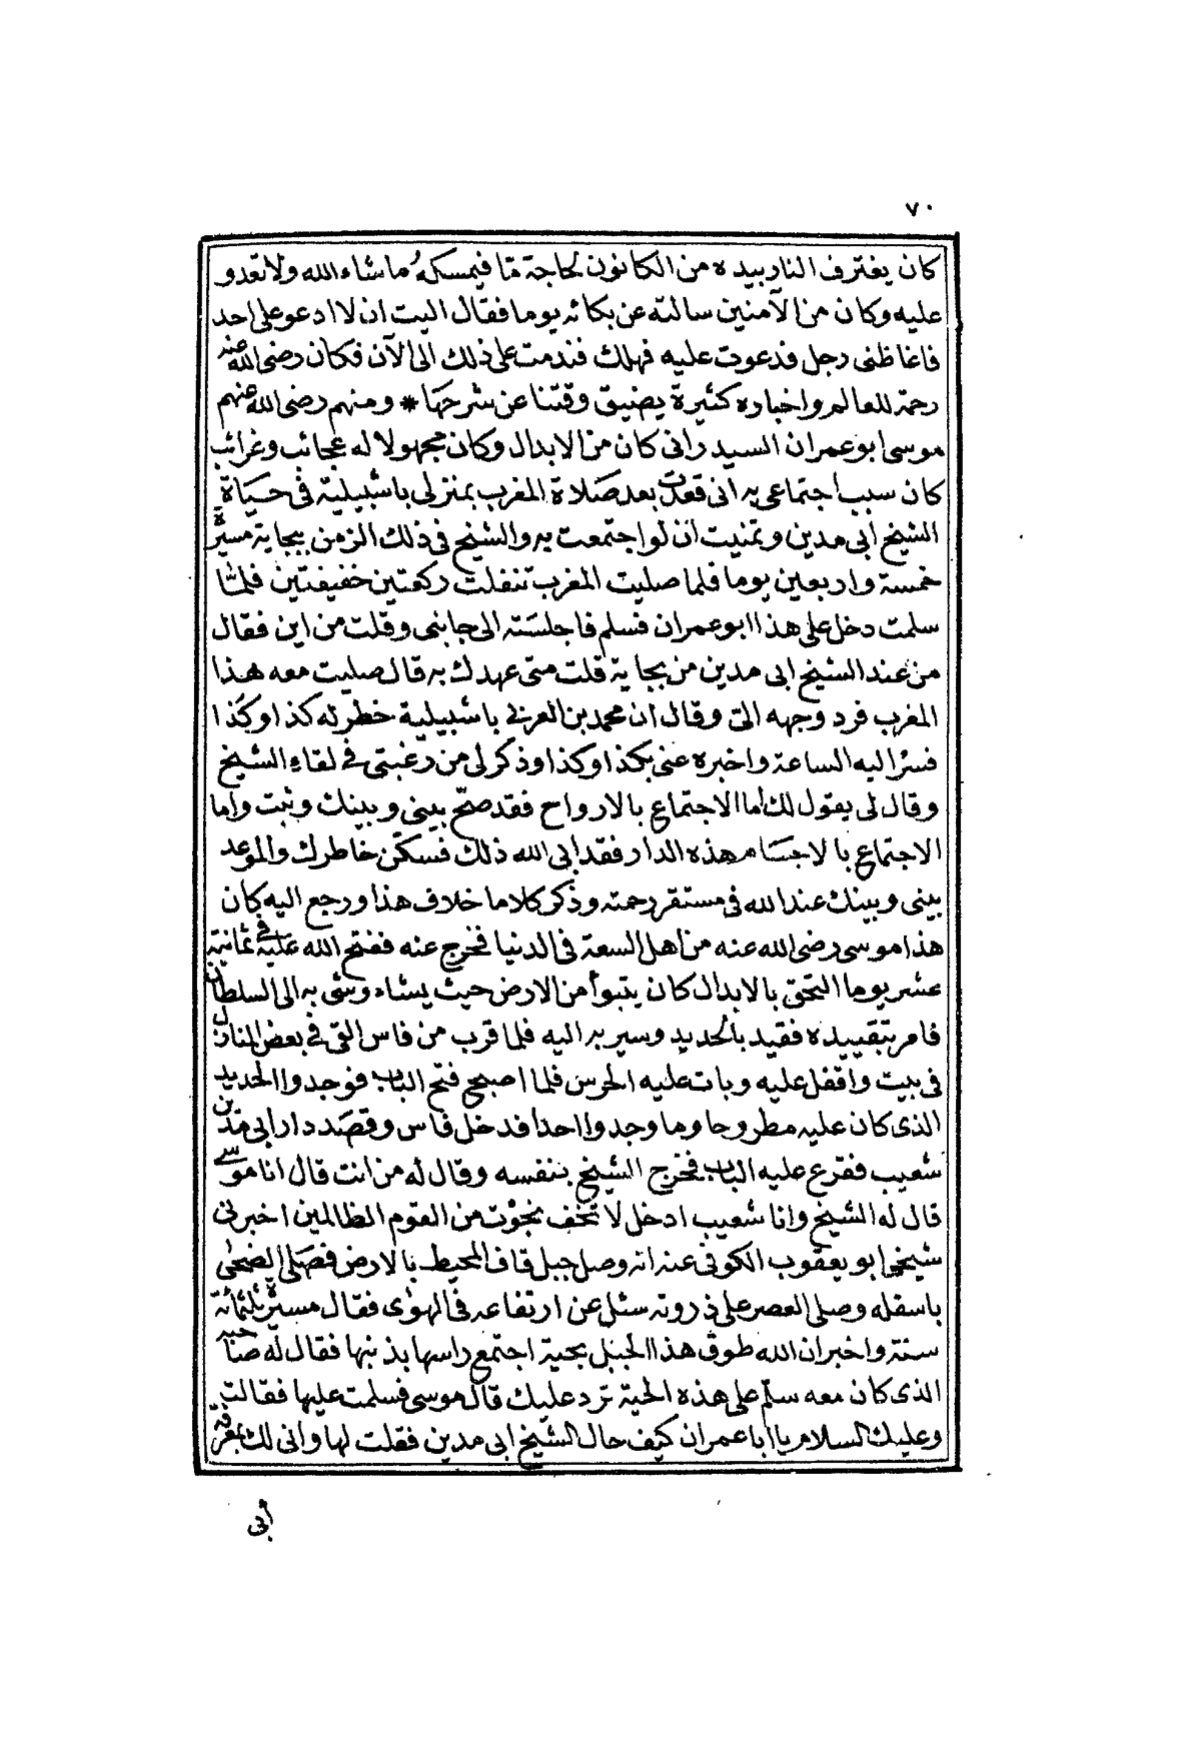 ٧٠
كان يغترف النار بيده من الكانون لحاجة ما فيمسكه ما شاء الله ولا تعدو
عليه وكان من الآمنين سالته عن بكائه يوما فقال اليت ان لا ادعو على احد
فاغاظنى رجل فدعوت عليه فهلك فندمت على ذلك الى الآن فكان رضى الله عنه
رحمة للعالم واخباره كثيرة يضيق وقتنا عن شرحها * ومنهم رضى الله عنهم
موسى ابو عمران السيدرانى كان من الابدال وكان مجهولا له عجائب وغرائب
كان سبب اجتماعى به انى قعدت بعد صلاة المغرب بمنزلى باشبيلية فى حياة
الشيخ ابى مدين وتمنيت ان لو اجتمعت به والشيخ فى ذلك الزمن ببجاية مسيرة
خمسة واربعين يوما فلما صليت المغرب تنفلت ركعتين خفيفتين فلما
سلمت دخل على هذا ابو عمران فسلم فاجلسته الى جانبى وقلت من اين فقال
من عند الشيخ ابى مدين من بجاية قلت متى عهدك به قال صليت معه هذا
المغرب فرد وجهه الىّ وقال ان محمد بن العربى باشبيلية خطر له كذا وكذا
فسر اليه الساعة واخبره عنى بكذا وكذا وذكر لى من رغبتى فى لقاء الشيخ
وقال لى يقول لك اما الاجتماع بالارواح فقد صحّ بينى وبينك وثبت واما
الاجتماع بالاجسام هذه الدار فقد ابى الله ذلك فسكّن خاطرك والموعد
بينى وبينك عند الله فى مستقر رحمته وذكر كلاما خلاف هذا ورجع اليه كان
هذا موسى رضى الله عنه من اهل السعة فى الدنيا فخرج عنه ففتح الله عليه فى ثمانية
عشر يوما التحق بالابدال كان يتبوأ من الارض حيث يشاء وشى به الى السلطان
فامر بتقييده فقيد بالحديد وسير به اليه فلما قرب من فاس القى فى بعض المنازل
فى بيت واقفل عليه وبات عليه الحرس فلما اصبح فتح الباب فوجدوا الحديد
الذى كان عليه مطروحا وما وجدوا احدا فدخل فاس وقصد دار ابى مدين
شعيب فقرع عليه الباب فخرج الشيخ بنفسه وقال له من انت قال انا موسى
قال له الشيخ وانا شعيب ادخل لا تخف نجوت من القوم الظالمين اخبرنى
شيخى ابو يعقوب الكوفى عنه انه وصل جبل قاف المحيط بالارض فصلى الضحى
باسفله وصلى العصر على ذروته سئل عن ارتفاعه فى الهواى فقال مسيرة ثلثمائة
سنة واخبر ان الله طوق هذا الجبل بحية اجتمع راسها بذنبها فقال له صاحبه
الذى كان معه سلّم على هذه الحية ترد عليك قال موسى فسلمت عليها فقالت
وعليك السلام يا ابا عمران كيف حال الشيخ ابى مدين فقلت لها وانى لك بمعرفة
أبى